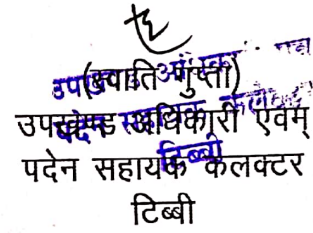 (स्वाति गुप्ता)
उपखण्ड अधिकारी एवम्
पदेन सहायक कलक्टर
टिब्बी
टिब्बी